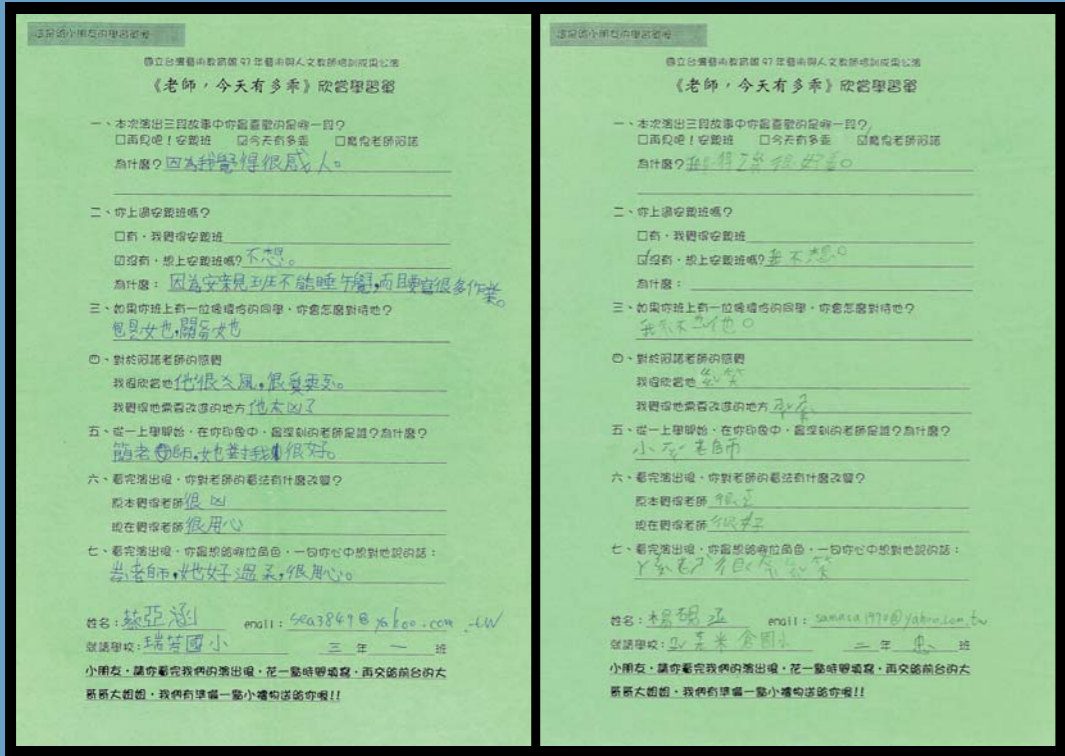 這是給小朋友的學習單喔
國立台灣藝術教育館97年藝術與人文教師培訓成果公演
《老師,今天有多乖》欣賞學習單
一、本次演出三段故事中你最喜歡的是哪一段?
□再見吧!安親班 ☑今天有多乖 □魔鬼老師阿諾
為什麼?因為我覺得很感人。
二、你上過安親班嗎?
□有,我覺得安親班
☑沒有,想上安親班嗎?不想。
為什麼: 因為安親班不能睡午覺,而且要寫很多作業。
三、如果你班上有一位像禮恰的同學,你會怎麼對待他?
包具女也,關务女也
四、對於阿諾老師的感覺
我很欣賞他 他很
我覺得他需要改進的地方 他太凶了
五、從一上學開始,在你印象中,最深刻的老師是誰?為什麼?
簡老師,她對我很好。
六、看完演出後,你對老師的看法有什麼改變?
原本覺得老師 很凶
現在覺得老師 很用心
七、看完演出後,你最想給哪位角色,一句你心中想對他說的話:
老師,她好溫柔,很用心。
姓名:蔡亞涵 email:sea3849@yahoo.com.tw
就讀學校:瑞芳國小 三年一班
小朋友,請你看完我們的演出後,花一點時間填寫,再交給前台的大
哥哥大姐姐,我們有準備一點小禮物送給你喔!!
這是給小朋友的學習單喔
國立台灣藝術教育館97年藝術與人文教師培訓成果公演
《老師,今天有多乖》欣賞學習單
一、本次演出三段故事中你最喜歡的是哪一段?
□再見吧!安親班 □今天有多乖 ☑魔鬼老師阿諾
為什麼?
二、你上過安親班嗎?
□有,我覺得安親班
☑沒有,想上安親班嗎? 我不想。
為什麼:
三、如果你班上有一位像禮恰的同學,你會怎麼對待他?
四、對於阿諾老師的感覺
我很欣賞他 笑
我覺得他需要改進的地方
五、從一上學開始,在你印象中,最深刻的老師是誰?為什麼?
小 老師
六、看完演出後,你對老師的看法有什麼改變?
原本覺得老師
現在覺得老師 很好
七、看完演出後,你最想給哪位角色,一句你心中想對他說的話:
姓名:楊 email:samasa1990@yahoo.com.tw
就讀學校: 米倉國小 二年忠班
小朋友,請你看完我們的演出後,花一點時間填寫,再交給前台的大
哥哥大姐姐,我們有準備一點小禮物送給你喔!!